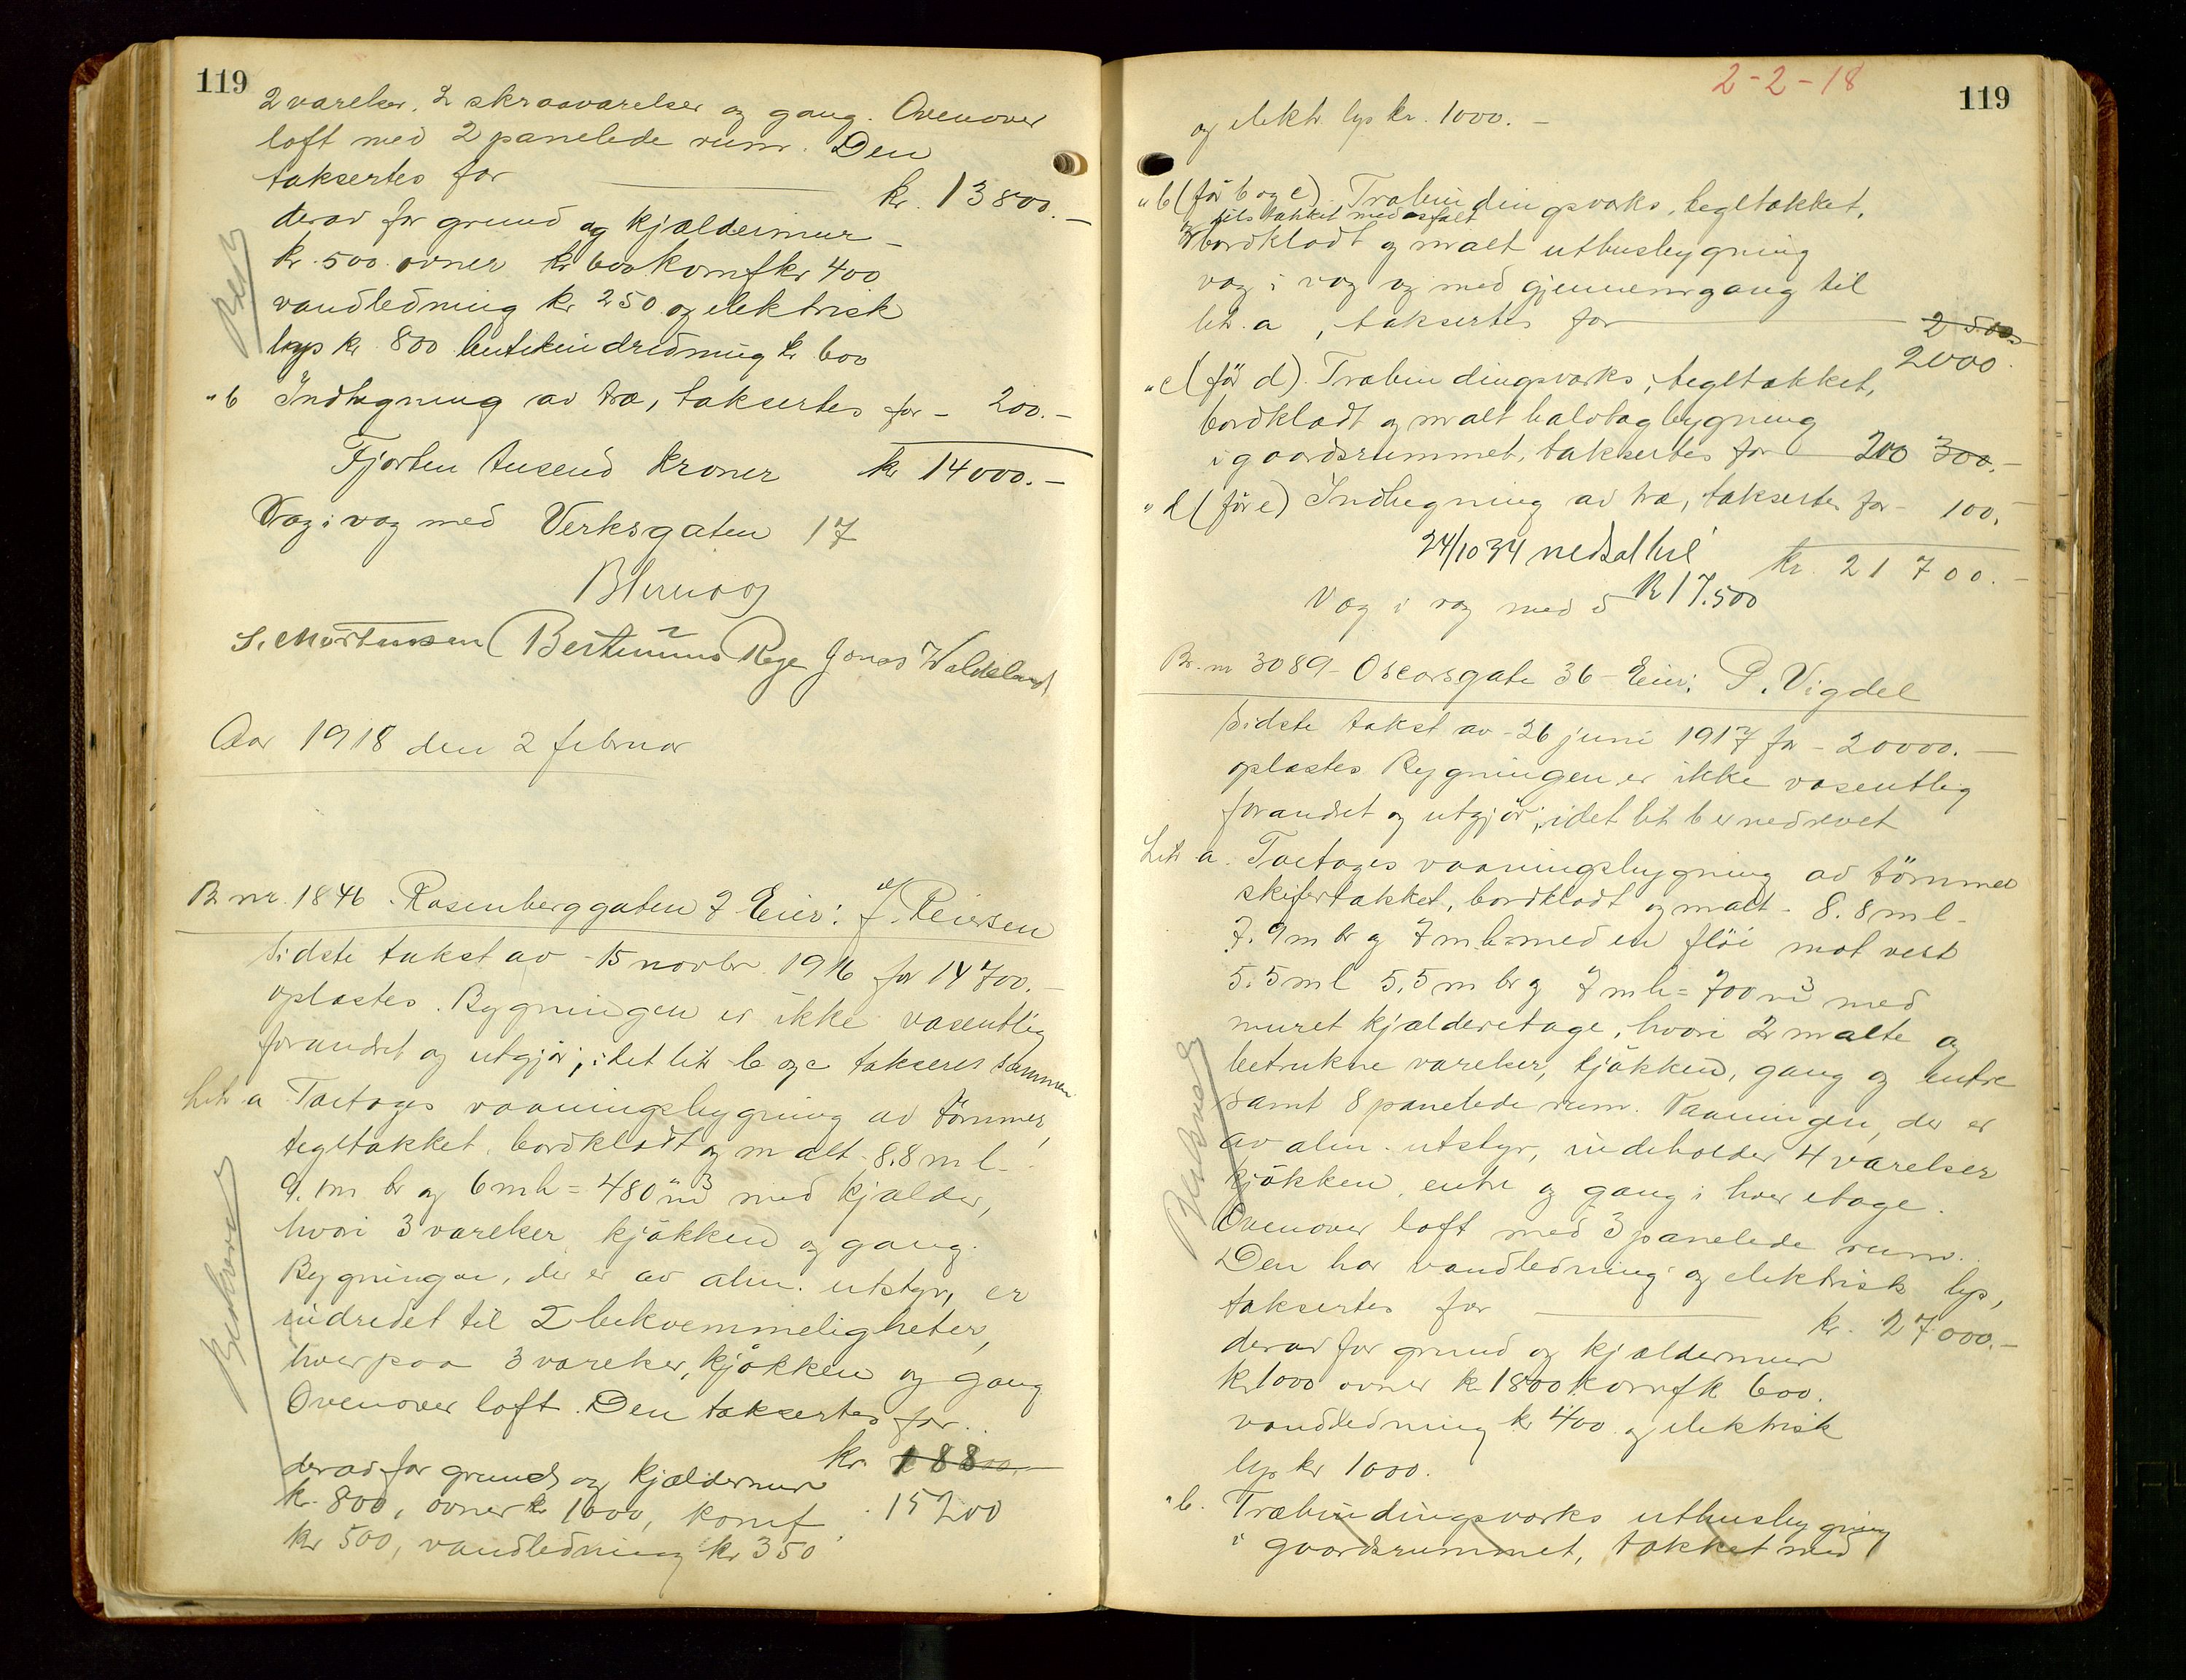 119
2 værelser, 2 skraaværelser og gang. Ovenover
loft med 2 panelede rum. Den
taksertes for kr. 13800.-
derav for grund og kjældermur -
kr. 500 ovner kr 600 komf kr 400
vandledning kr 250 og elektrisk
lys kr 800 butikindredning kr 600
" b Indhegning av træ, taksertes for - 200.-
Fjorten tusend kroner kr 14000.-
Væg i væg med Verksgaten 17
S. Mortensen Bertinius Rege Jonas
Aar 1918 den 2 februar
B. nr. 1846 Rosenberggaten 7 Eier: J. Reiersen
Sidste takst av 15 novbr. 1916 for 14700.-
oplæstes. Bygningen er ikke væsentlig
forandret og utgjør, idet litr b og c takseres sammen
Litr a Toetages vaaningsbygning av tømmer,
tegltækket, bordklædt og malt - 8.8 m l -
9.1 m br og 6 m h = 480 m³ med kjælder,
hvori 3 værelser kjøkken og gang.
Bygningen, der er av alm. utstyr, er
indredet til 2 bekvemmeligheter,
hver paa 3 værelser, kjøkken og gang
Ovenover loft. Den taksertes for
kr 18800.-
derav for grund og kjældermur
15200
kr. 800, ovner kr 1000, komf
kr 500, vandledning kr 350
2-2-18
119
og elektr. lys kr. 1000.-
" b (før b og c). Træbindingsverks, tegltækket,
dels tækket med asfalt
bordklædt og malt uthusbygning
væg i væg og med gjennemgang til
litr. a, taksertes for 2500
2000
" c (før d). Træbindingsverks, tegltækket,
bordklædt og malt halvtagbygning
i gaardsrummet, taksertes for 200 300.-
" d (før e) Indhegning av træ, taksertes for - 100.-
24/10 34 nedsat til
kr. 21700.-
kr 17.500
Væg i væg med 5
Br. nr 3089 - Oscarsgate 36 - Eier: P. Vigdel
Sidste takst av - 26 juni 1917 for - 20000.-
oplæstes Bygningen er ikke væsentlig
forandret og utgjør, idet litr b er nedrevet
Litr a. Toetages vaaningsbygning av tømmer
skifertækket, bordklædt og malt - 8.8 m l -
7.9 m br og 7 m h - med en fløi mot vest
5.5 m l 5.5 m br og 7 m h = 700 m³ med
muret kjælderetage, hvori 2 malte og
betrukne værelser, kjøkken, gang og entre
samt 8 panelede rum. Vaaningen, der er
av alm. utstyr, indeholder 4 værelser
kjøkken, entre og gang i hver etage.
Ovenover loft med 3 panelede rum.
Den har vandledning og elektrisk lys,
taksertes for kr. 27000.-
derav for grund og kjældermur
kr 1000 ovner kr 1800 komf kr 600.
vandledning kr 400 og elektrisk
lys kr 1000.
" b. Træbindingsverks uthusbygning
i gaardsrummet, tækket med